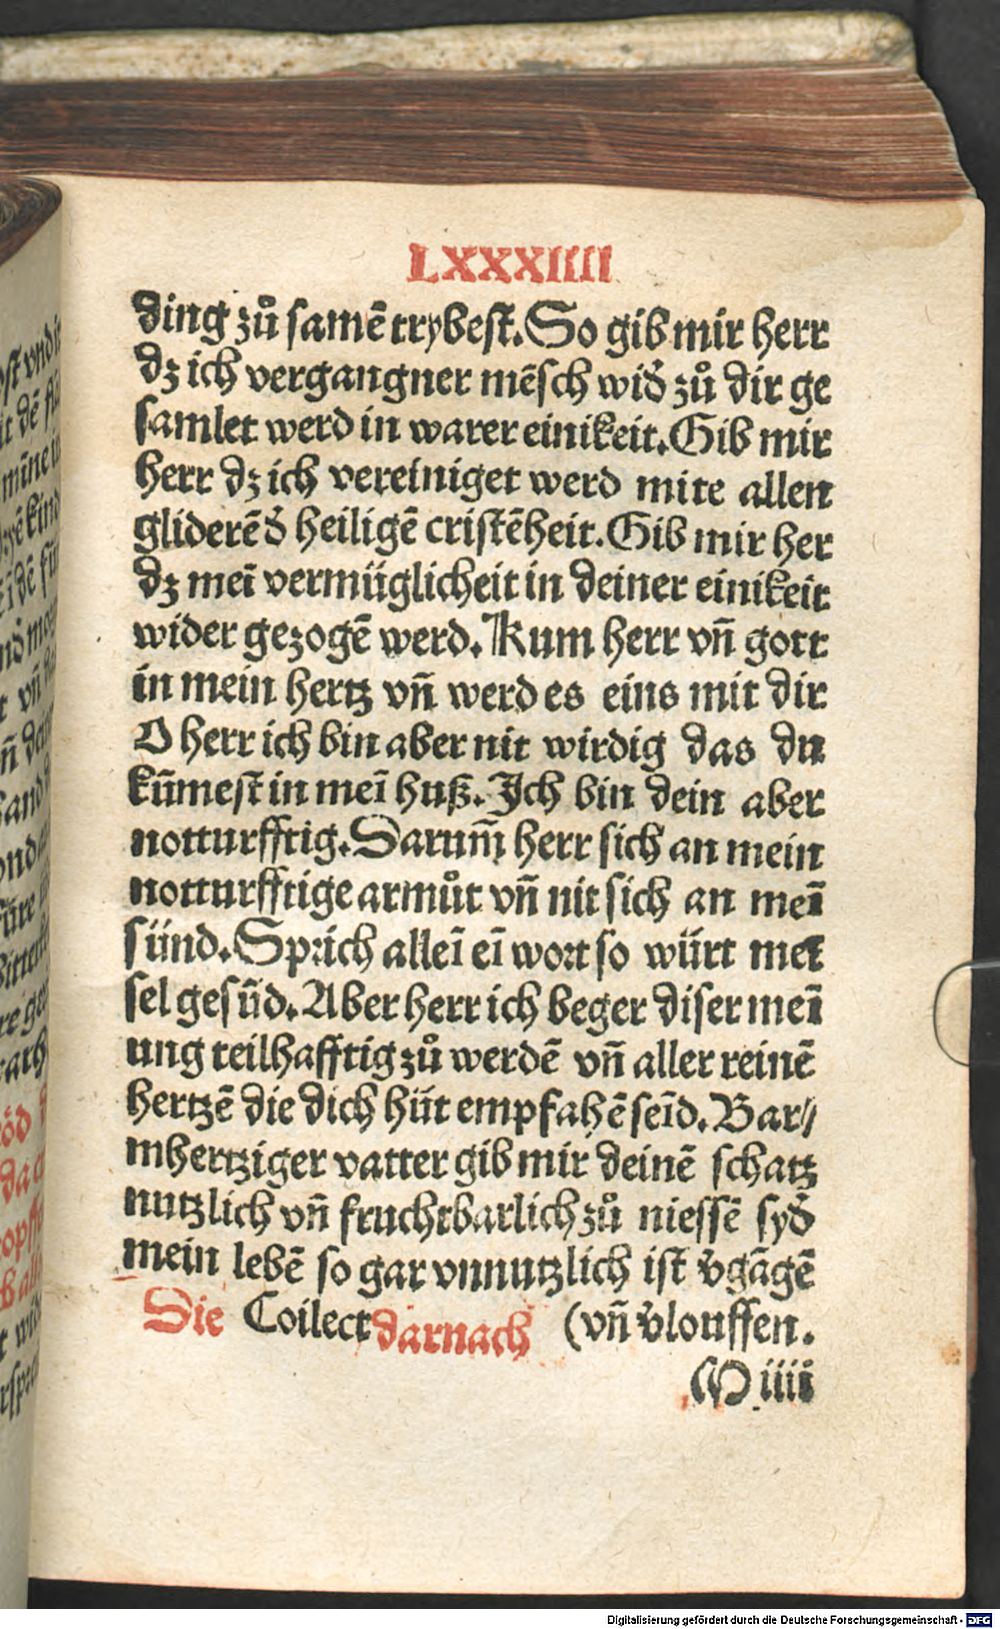 LXXXIIII
ding zů samē trybest. So gib mir herr
dz ich vergangner mēsch wið zů dir ge
samlet werd in warer einikeit. Gib mir
herr dz ich vereiniget werd mitt allen
gliderē ð heiligē cristēheit. Gib mir her
dz meī vermüglicheit in deiner einikeit
wider gezogē werd. Kum herr vñ gott
in mein hertz vñ werd es eins mit dir
O herr ich bin aber nit wirdig das du
kūmest in meī huß. Ich bin dein aber
notturfftig. Darum̄ herr sich an mein
notturfftige armůt vñ nit sich an meī
sünd. Sprich alleī eī wort so würt meī
sel gesūd. Aber herr ich beger diser meī
ung teilhafftig zů werdē vñ aller reinē
hertzē die dich hüt empfahē seīd. Bar⸗
mhertziger vatter gib mir deinē schatz
nutzlich vñ fruchtbarlich zů niessē syð
mein lebē so gar vnnutzlich ist v̄gāgē
Die Collect darnach (vñ v̄louffen.
M iiii
ding
Digitalisierung gefördert durch die Deutsche Forschungsgemeinschaft - DFG